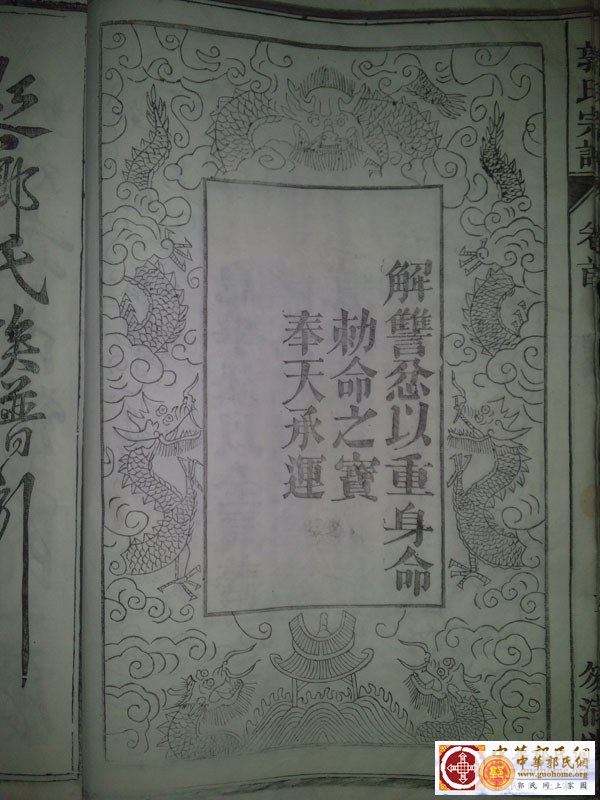 郭氏宗譜
卷首
解讐忿以重身命
勅命之寶
奉天承運
郭氏族譜引
中華郭氏網
www.guohome.org
郭氏網上家園